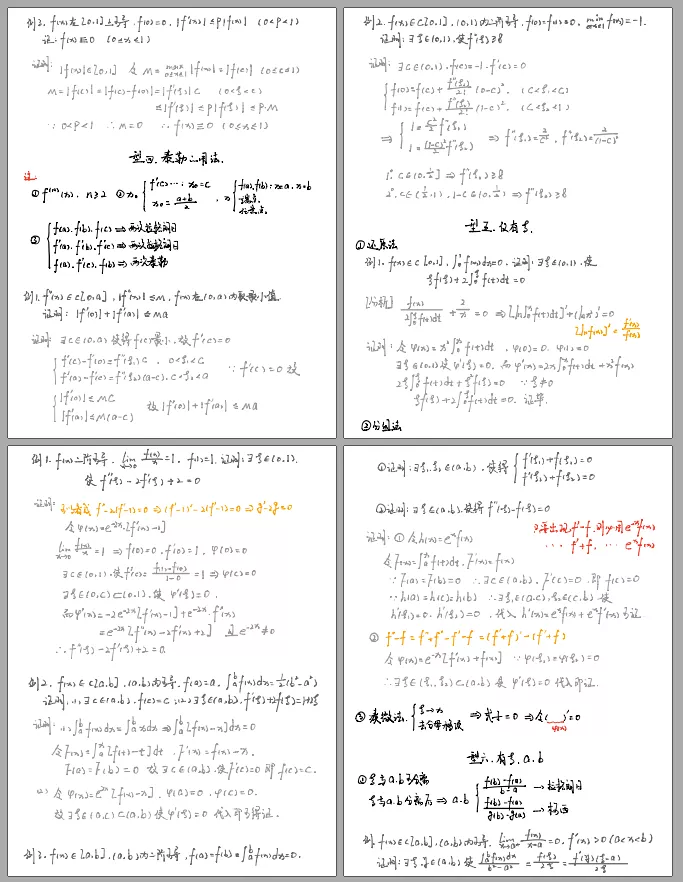 例2. f(x)在[0,1]上可导, f(0)=0, |f'(x)| ≤ p|f(x)| (0<p<1)
证: f(x)≡0 (0≤x≤1)
证明: |f(x)|∈[0,1] 令 M = max |f(x)| = |f(c)| (0≤c≤1)
M = |f(c)| = |f(c)-f(0)| = |f'(ξ)|c (0<ξ<c)
≤ |f'(ξ)| ≤ p|f(ξ)| ≤ p·M
∵ 0<p<1 ∴ M=0 ∴ f(x)≡0 (0≤x≤1)
型四. 泰勒公式用法.
注:
① f⁽ⁿ⁾(x), n≥2 ② x₀ { f'(c)…: x₀=c
x₀ = (a+b)/2 , x { f(a), f(b): x=a, x=b
端点.
任意点.
③ { f(a). f(b). f(c) ⇒ 两次拉格朗日
f'(a). f'(b). f'(c) ⇒ 两次拉格朗日
f(a). f'(c). f(b) ⇒ 两次泰勒
例1. f''(x)∈C[0,a], |f''(x)| ≤ M, f(x)在(0,a)内取最小值.
证明: |f'(0)|+|f'(a)| ≤ Ma
证明: ∃c∈(0,a) 使得 f(c) 最小, 故 f'(c)=0
{ f'(c)-f'(0)=f''(ξ₁)c, 0<ξ₁<c
f'(a)-f'(c)=f''(ξ₂)(a-c), c<ξ₂<a ∵ f'(c)=0 故
{ |f'(0)| ≤ Mc
|f'(a)| ≤ M(a-c) 故 |f'(0)|+|f'(a)| ≤ Ma
例2. f(x)∈C[0,1], (0,1)内二阶可导, f(0)=f(1)=0, min f(x)=-1.
证明: ∃ξ∈(0,1), 使 f''(ξ)≥8
证明: ∃c∈(0,1), f(c)=-1, f'(c)=0
{ f(0)=f(c)+ f''(ξ₁)/2! (0-c)², (0<ξ₁<c)
f(1)=f(c)+ f''(ξ₂)/2! (1-c)², (c<ξ₂<1)
⇒ { 1 = c²/2 f''(ξ₁)
1 = (1-c)²/2 f''(ξ₂) ⇒ f''(ξ₁)=2/c², f''(ξ₂)=2/(1-c)²
1°. c∈(0,½] ⇒ f''(ξ₁)≥8
2°. c∈(½,1), 1-c∈(0,½) ⇒ f''(ξ₂)≥8
型五. 仅有ξ.
①还原法
例1. f(x)∈C[0,1], ∫₀¹f(x)dx=0. 证明: ∃ξ∈(0,1), 使
ξf(ξ)+2∫₀^ξ f(t)dt=0
[分析] f(x)/∫₀ˣf(t)dt + 2/x = 0 ⇒ [ln∫₀ˣf(t)dt]'+(lnx²)'=0
[lnf(x)]' = f'(x)/f(x)
证明: 令 φ(x)=x²∫₀ˣf(t)dt, φ(0)=0, φ(1)=0
∃ξ∈(0,1) 使 φ'(ξ)=0, 而 φ'(x)=2x∫₀ˣf(t)dt+x²f(x)
2ξ∫₀^ξ f(t)dt+ξ²f(ξ)=0 ∵ ξ≠0
ξf(ξ)+2∫₀^ξ f(t)dt=0. 证毕.
②分组法
例1. f(x)二阶可导, lim f(x)/x=1, f(1)=1. 证明: ∃ξ∈(0,1).
使 f''(ξ)-2f'(ξ)+2=0
证明: f''-2(f'-1)=0 ⇒ (f'-1)'-2(f'-1)=0 ⇒ g'-2g=0
令 φ(x)=e⁻²ˣ[f'(x)-1]
lim f(x)/x=1 ⇒ f(0)=0, f'(0)=1, φ(0)=0
∃c∈(0,1), 使 f'(c)= (f(1)-f(0))/(1-0) =1 ⇒ φ(c)=0
∃ξ∈(0,c)⊂(0,1), 使 φ'(ξ)=0.
而 φ'(x)=-2e⁻²ˣ[f'(x)-1]+e⁻²ˣ·f''(x)
=e⁻²ˣ[f''(x)-2f'(x)+2] 且 e⁻²ˣ≠0
∴ f''(ξ)-2f'(ξ)+2=0
例2. f(x)∈C[a,b], (a,b)内可导, f(a)=a, ∫ₐᵇf(x)dx=½(b²-a²)
证明: (1) ∃c∈(a,b), f(c)=c
证明: (1) ∫ₐᵇf(x)dx=∫ₐᵇxdx ⇒ ∫ₐᵇ[f(x)-x]dx=0
令F(x)=∫ₐˣ[f(t)-t]dt, F'(x)=f(x)-x.
F(a)=F(b)=0 故 ∃c∈(a,b), 使F'(c)=0 即 f(c)=c.
(2) 令 φ(x)=e²ˣ[f(x)-x], φ(a)=0, φ(c)=0.
故∃ξ∈(a,c)⊂(a,b) 使 φ'(ξ)=0 代入即可得证.
例3. f(x)∈[a,b], (a,b)内二阶可导, f(a)=f(b)=∫ₐᵇf(x)dx=0.
①证明: ∃ξ₁,ξ₂∈(a,b), 使得 { f'(ξ₁)+f(ξ₁)=0
f'(ξ₂)+f(ξ₂)=0
②证明: ∃ξ∈(a,b), 使得 f''(ξ)-f(ξ)=0
证明: ① 令h(x)=eˣf(x)
只要出现f'-f, 则必用e⁻ˣf(x)
… f'+f, … eˣf(x)
令F(x)=∫ₐˣf(t)dt, F'(x)=f(x)
∵ F(a)=F(b)=0 ∴ ∃c∈(a,b), F'(c)=0, 即 f(c)=0
∵ h(a)=h(c)=h(b) ∴ ξ₁∈(a,c), ξ₂∈(c,b) 使
h'(ξ₁)=0, h'(ξ₂)=0, 代入 h'(x)=eˣf(x)+eˣf'(x)可证.
② f''-f = f''+f'-f'-f = (f'+f)'-(f'+f)
令 φ(x)=e⁻ˣ[f'(x)+f(x)] ∵ φ(ξ₁)=φ(ξ₂)=0
∴ ∃ξ∈(ξ₁,ξ₂)⊂(a,b) 使 φ'(ξ)=0 代入即证.
③ 凑微法. { ξ→x
去分母移项 ⇒ 式子=0 ⇒ 令( )'=0
φ(x)
型六. 有ξ, a, b
① ξ与a,b可分离
ξ与a,b分离后 ⇒ a,b { (f(b)-f(a))/(b-a) → 拉格朗日
(f(b)-f(a))/(g(b)-g(a)) → 柯西
例. f(x)∈C[a,b], (a,b)内可导, lim f(x)/(x-a)=0, f'(x)>0 (a<x<b)